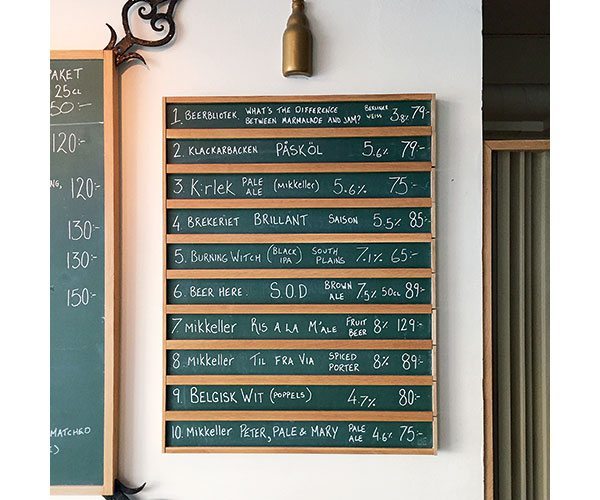 PAKET
25CL
50:-
120:-
NG, 120:-
130:-
130:-
150:-
MATCHED
1. BEERBLIOTEK WHAT'S THE DIFFERENCE BETWEEN MARMALADE AND JAM? BERLINER WEISS 3,8% 79:-
2. KLACKARBACKEN PÅSKÖL 5.6% 79:-
3. K:rlek PALE ALE (Mikkeller) 5.6% 75:-
4 BREKERIET BRILLANT SAISON 5.5% 85:-
5. BURNING WITCH (BLACK IPA) SOUTH PLAINS 7.1% 65:-
6. BEER HERE. S.O.D BROWN ALE 7,5% 50CL 89:-
7. Mikkeller RIS A LA M'ALE FRUIT BEER 8% 129:-
8. Mikkeller TIL FRA VIA SPICED PORTER 8% 89:-
9. BELGISK WIT (POPPELS) 4.7% 80:-
10. Mikkeller PETER, PALE & MARY PALE ALE 4.6% 75:-